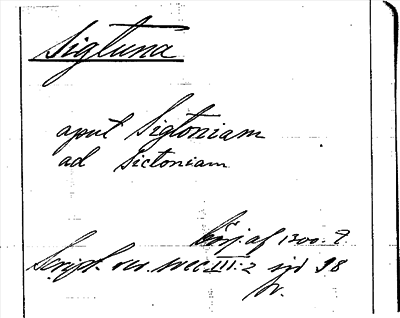 Sigtuna
aput Sigtoniam
ad Sictoniam
börj. af 1300. t.
Script. rer. svec. III:2 sid 98